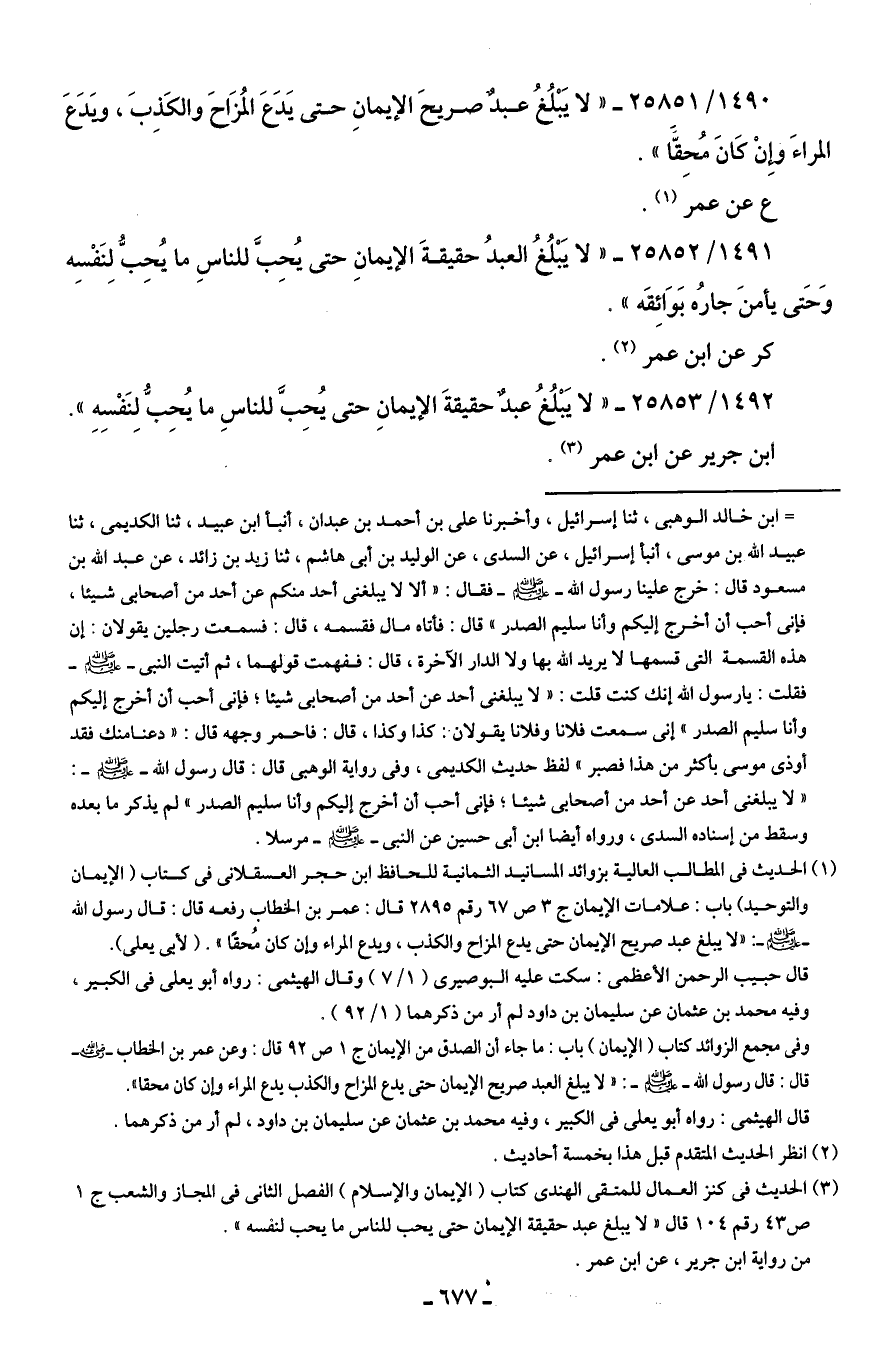 ١٤٩٠/ ٢٥٨٥١ ـ « لا يَبْلُغُ عبدٌ صريحَ الإيمانِ حتى يَدَعَ المُزَاحَ والكَذِبَ ، ويَدَعَ
المراءَ وإِنْ كَانَ مُحِقًّا » .
ع عن عمر (١) .
١٤٩١/ ٢٥٨٥٢ ـ « لا يَبْلُغُ العبدُ حقيقةَ الإيمانِ حتى يُحِبَّ للناسِ ما يُحِبُّ لِنَفْسِه
وَحَتى يأمنَ جارُه بَوَائِقَه » .
كر عن ابن عمر (٢) .
١٤٩٢/ ٢٥٨٥٣ ـ « لا يَبْلُغُ عبدٌ حقيقةَ الإيمانِ حتى يُحِبَّ للناسِ ما يُحِبُّ لِنَفْسِهِ ».
ابن جرير عن ابن عمر (٣) .
= ابن خالد الوهبى ، ثنا إسرائيل ، وأخبرنا على بن أحمد بن عبدان ، أنبأ ابن عبيد ، ثنا الكديمى ، ثنا
عبيد الله بن موسى ، أنبأ إسرائيل ، عن السدى ، عن الوليد بن أبى هاشم ، ثنا زيد بن زائد ، عن عبد الله بن
مسعود قال : خرج علينا رسول الله ـ ﷺ ـ فقال : « ألا لا يبلغنى أحد منكم عن أحد من أصحابى شيئا ،
فإنى أحب أن أخرج إليكم وأنا سليم الصدر » قال : فأتاه مال فقسمه ، قال : فسمعت رجلين يقولان : إن
هذه القسمة التى قسمها لا يريد الله بها ولا الدار الآخرة ، قال : ففهمت قولهما ، ثم أتيت النبى ـ ﷺ ـ
فقلت : يارسول الله إنك كنت قلت : « لا يبلغنى أحد عن أحد من أصحابى شيئا ؛ فإنى أحب أن أخرج إليكم
وأنا سليم الصدر » إنى سمعت فلانا وفلانا يقولان : كذا وكذا ، قال : فاحمر وجهه قال : « دعنامنك فقد
أوذى موسى بأكثر من هذا فصبر » لفظ حديث الكديمى ، وفى رواية الوهبى قال : قال رسول الله ـ ﷺ ـ :
« لا يبلغنى أحد عن أحد من أصحابى شيئا ؛ فإنى أحب أن أخرج إليكم وأنا سليم الصدر » لم يذكر ما بعده
وسقط من إسناده السدى ، ورواه أيضا ابن أبى حسين عن النبى ـ ﷺ ـ مرسلا .
(١) الحديث فى المطالب العالية بزوائد المسانيد الثمانية للحافظ ابن حجر العسقلانى فى كتاب ( الإيمان
والتوحيد) باب : علامات الإيمان ج ٣ ص ٦٧ رقم ٢٨٩٥ قال : عمر بن الخطاب رفعه قال : قال رسول الله
ـ ﷺ ـ: «لا يبلغ عبد صريح الإيمان حتى يدع المزاح والكذب ، ويدع المراء وإن كان مُحقًا » . ( لأبى يعلى).
قال حبيب الرحمن الأعظمى : سكت عليه البوصيرى ( ١/ ٧ ) وقال الهيثمى : رواه أبو يعلى فى الكبير ،
وفيه محمد بن عثمان عن سليمان بن داود لم أر من ذكرهما ( ١/ ٩٢ ) .
وفى مجمع الزوائد كتاب ( الإيمان ) باب : ما جاء أن الصدق من الإيمان ج ١ ص ٩٢ قال : وعن عمر بن الخطاب ـ رضي الله عنه ـ
قال : قال رسول الله ـ ﷺ ـ : « لا يبلغ العبد صريح الإيمان حتى يدع المزاح والكذب يدع المراء وإن كان محقا».
قال الهيثمى : رواه أبو يعلى فى الكبير ، وفيه محمد بن عثمان عن سليمان بن داود ، لم أر من ذكرهما .
(٢) انظر الحديث المتقدم قبل هذا بخمسة أحاديث .
(٣) الحديث فى كنز العمال للمتقى الهندى كتاب ( الإيمان والإسلام ) الفصل الثانى فى المجاز والشعب ج ١
ص٤٣ رقم ١٠٤ قال « لا يبلغ عبد حقيقة الإيمان حتى يحب للناس ما يحب لنفسه » .
من رواية ابن جرير ، عن ابن عمر .
ـ ٦٧٧ ـ